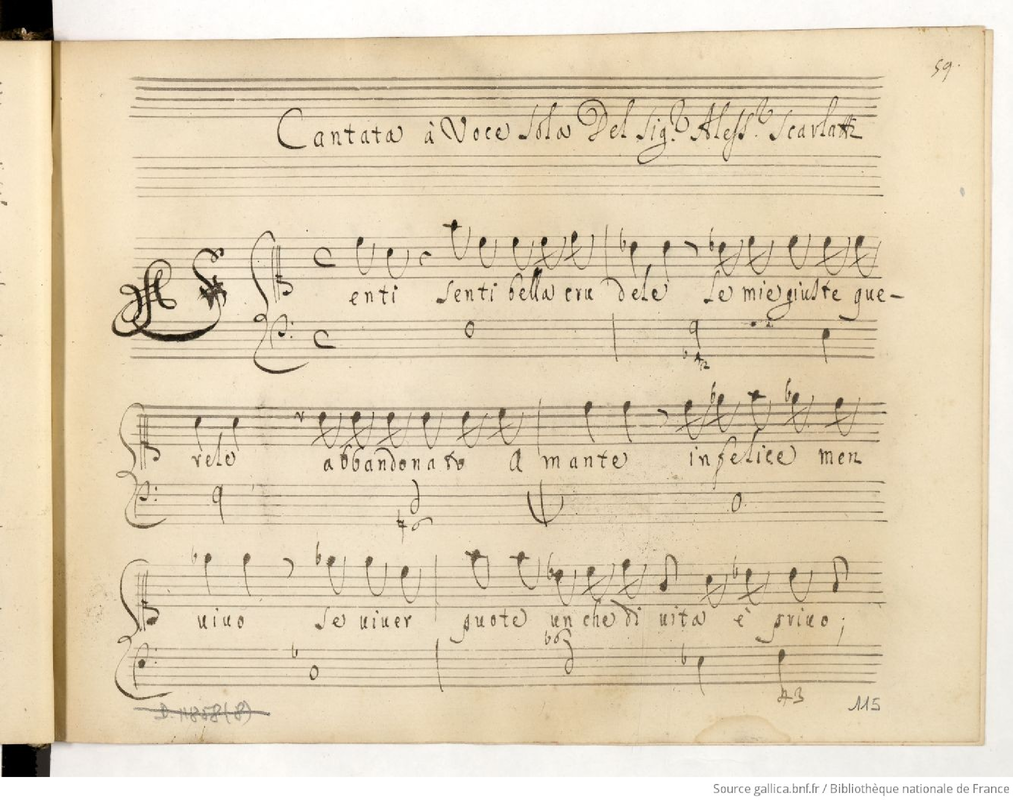 59.
Cantata à Voce Sola Del Sig.r Aless.o Scarlatti
enti Senti bella cru dele Se mie giuste que-
rele abbandonato A mante infelice men
uiuo Se uiuer puote un che di uita è priuo;
115
Source gallica.bnf.fr / Bibliothèque nationale de France